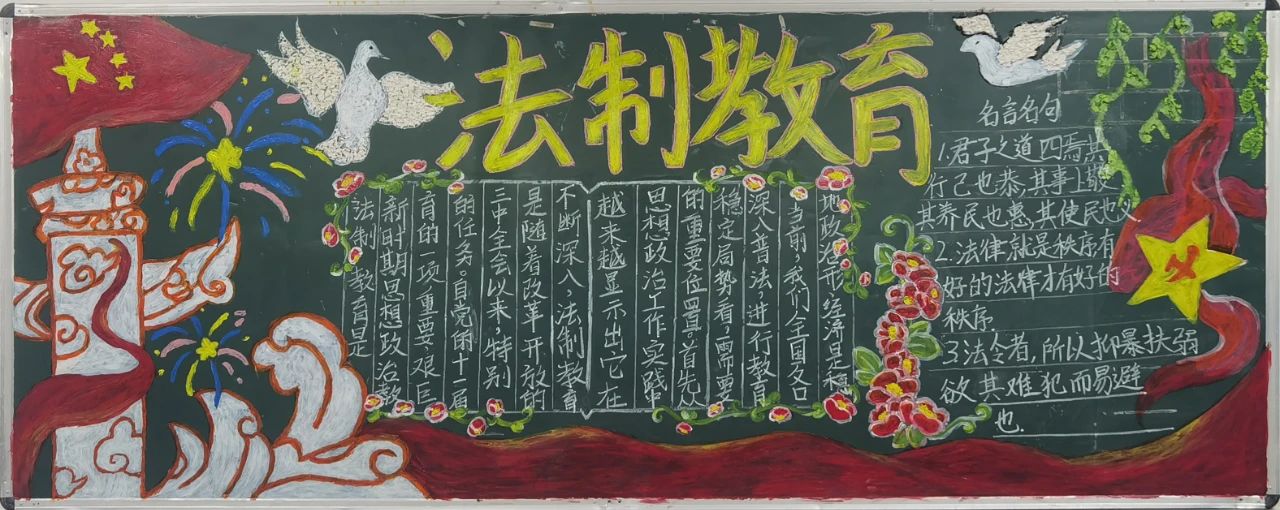 法制教育
法制教育是
新时期思想政治教
育的一项重要艰巨
的任务。自党的十一届
三中全会以来,特别
是随着改革开放的
不断深入法制教育
越来越显示出它在
思想政治工作实践中
的重要位置。首先从
稳定局势看,需要
深入普法,进行教育
当前,我们全国及
地政治形经济是稳
名言名句
1.君子之道四焉其
行己也恭,其事上敬
其养民也惠,其使民也义
2.法律就是秩序有
好的法律才有好的
秩序.
3.法令者,所以抑暴扶弱
欲其难犯而易避
也.